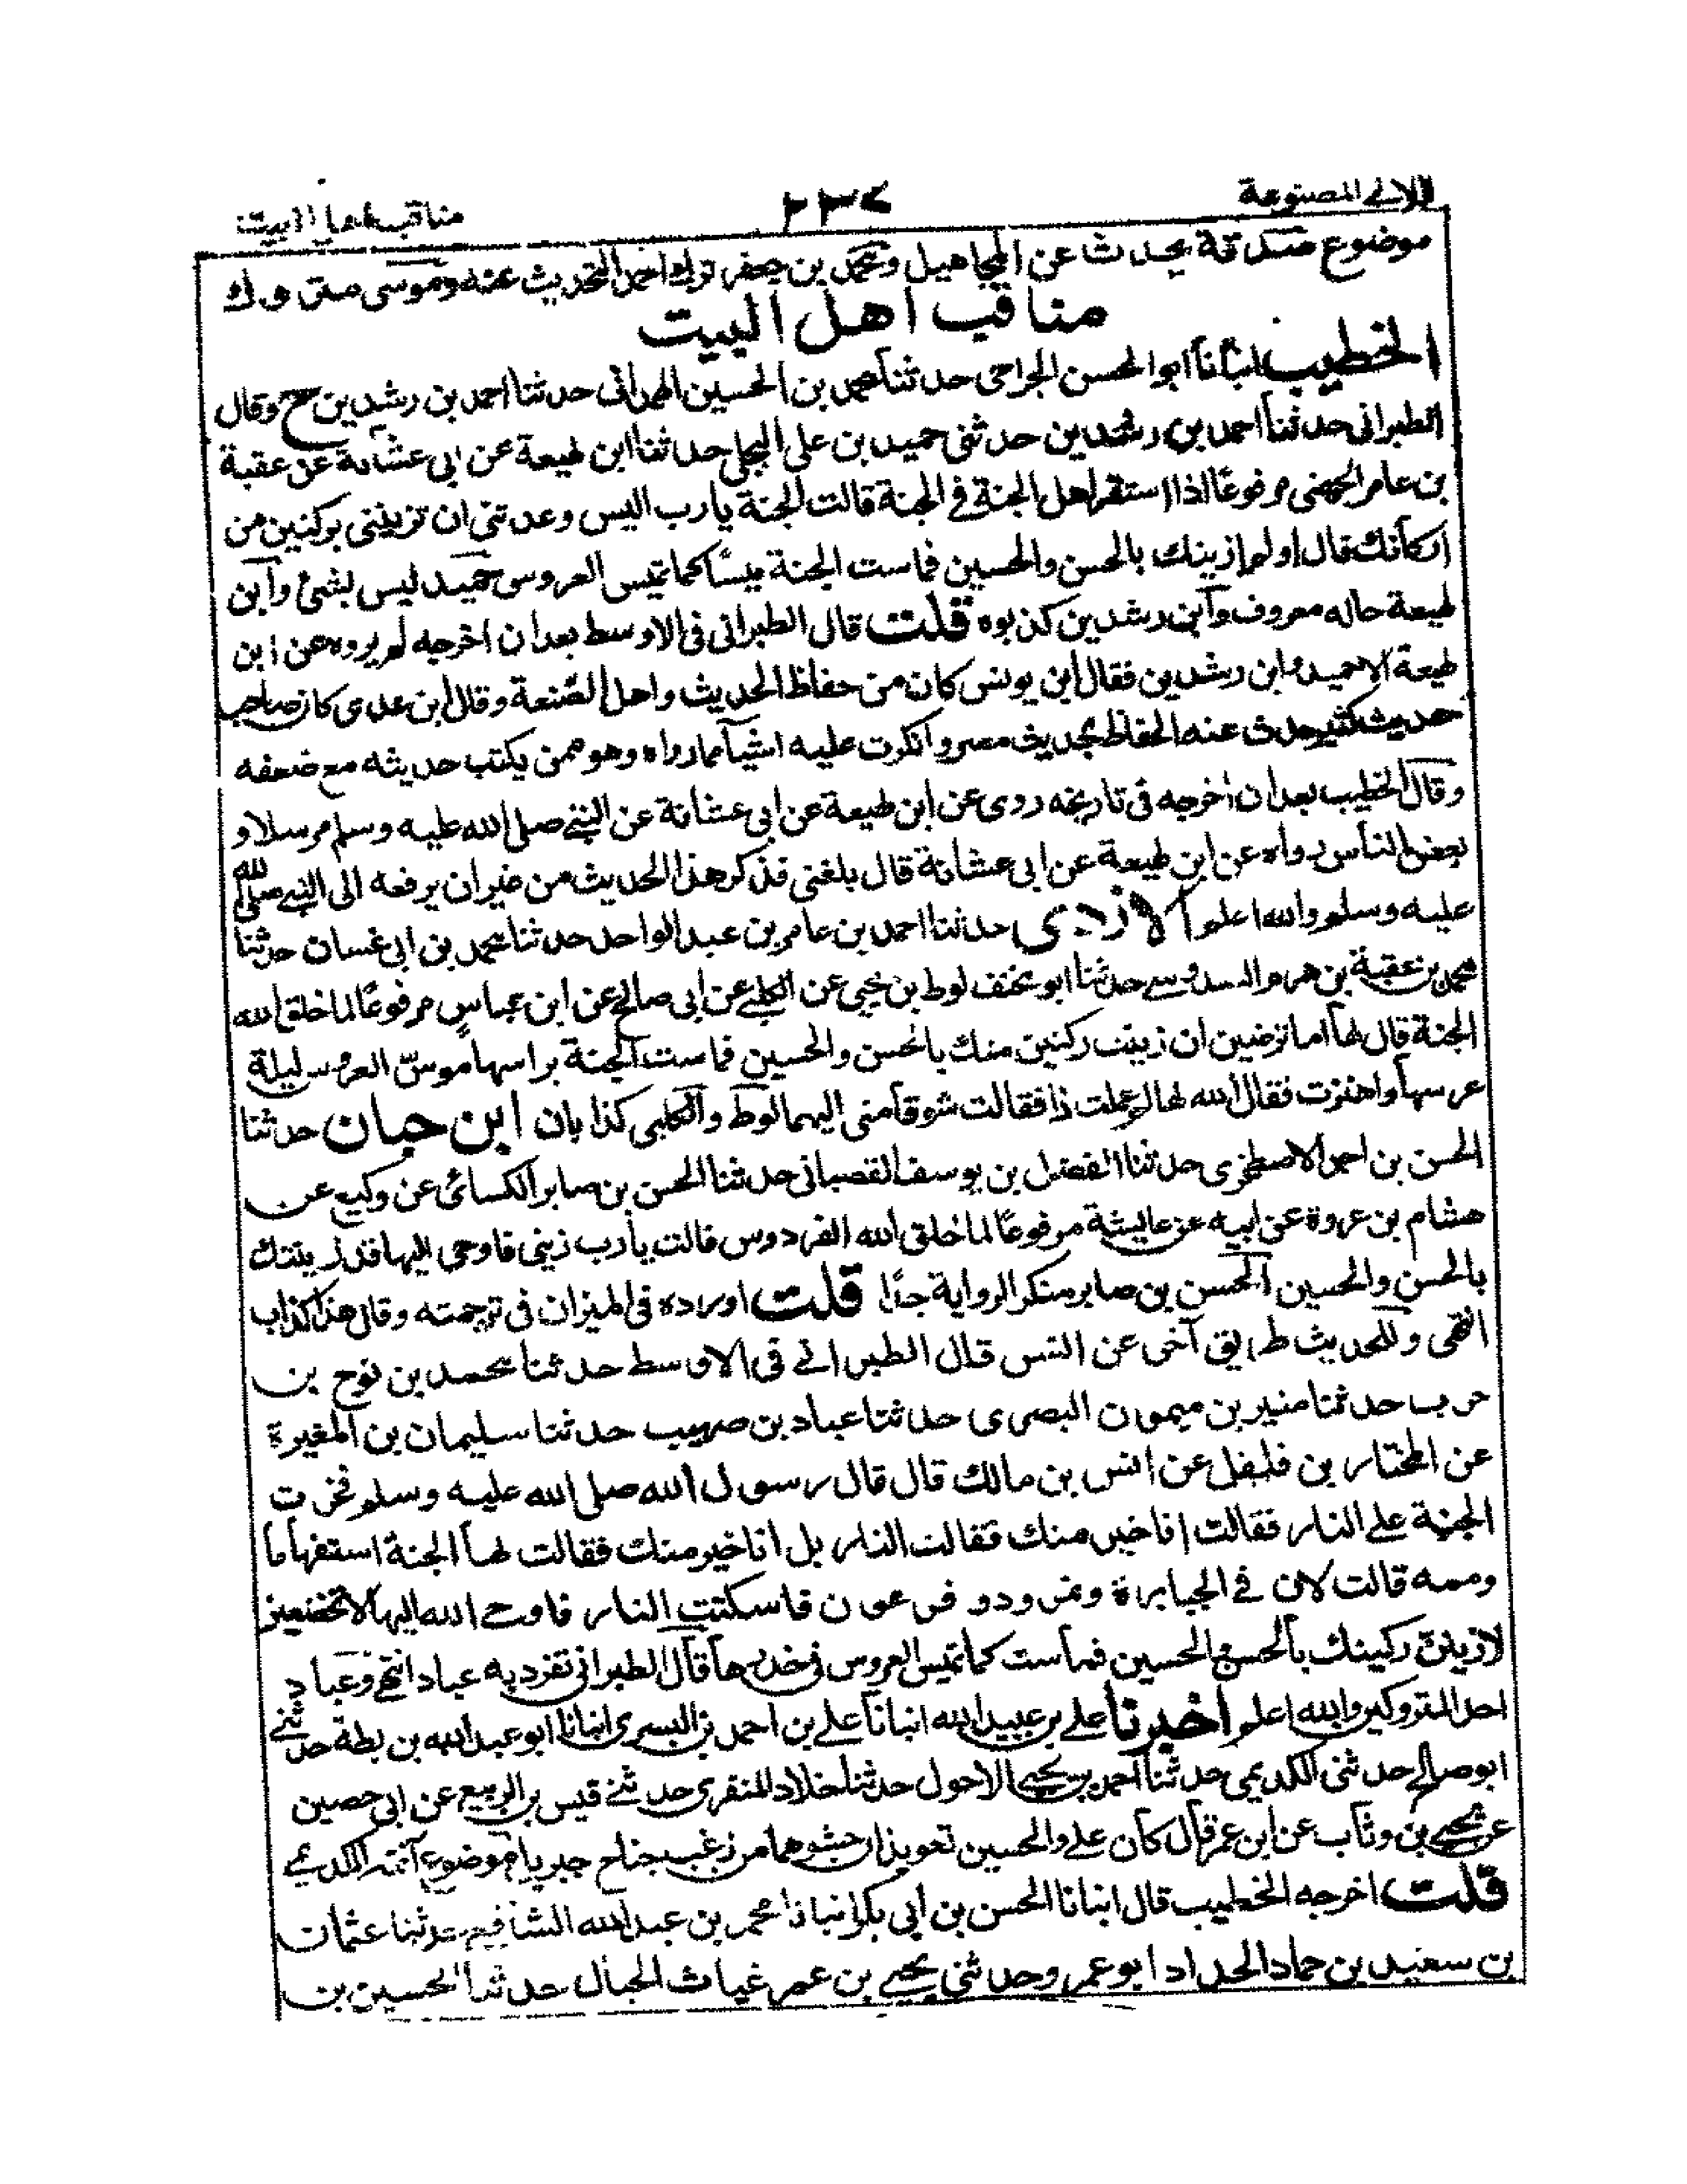 اللآلي المصنوعة
مناقب اهل البيت
موضوع صدقة يحدث عن المجاهيل ومحمد بن جعفر ترك احمد التحديث عنه وموسى متروك
مناقب اهل البيت
الخطيب انبأنا ابو الحسن الجراحى حدثنا محمد بن الحسين الهمدانى حدثنا احمد بن رشدين ح وقال
الطبرانى حدثنا احمد بن رشدين حدثنى حميد بن على البجلى حدثنا ابن لهيعة عن ابى عشانة عن عقبة
بن عامر الجهنى مرفوعًا اذا استقر اهل الجنة فى الجنة قالت الجنة يا رب اليس وعدتنى ان تزيننى بركنين من
اركانك قال اولم ازينك بالحسن والحسين فماست الجنة ميسًا كما تميس العروس حميد ليس بشئ وابن
لهيعة حاله معروف وابن رشدين كذبوه قلت قال الطبرانى فى الاوسط بعد ان اخرجه لم يروه عن ابن
لهيعة الا حميد وابن رشدين فقال ابن يونس كان من حفاظ الحديث واهل الصنعة وقال ابن عدى كان صاحب
حديث كثير حدث عنه الحفاظ بحديث مصر وانكرت عليه اشيآ مما رواه وهو ممن يكتب حديثه مع ضعفه
وقال الخطيب بعد ان اخرجه فى تاريخه روى عن ابن لهيعة عن ابى عشانة عن النبى صلى الله عليه وسلم مرسلا و
بعض الناس رواه عن ابن لهيعة عن ابى عشانة قال بلغنى فذكر هذا الحديث من غير ان يرفعه الى النبى صلى الله
عليه وسلم والله اعلم الازدى حدثنا احمد بن عامر بن عبد الواحد حدثنا محمد بن ابى غسان حدثنا
محمد بن عقبة بن هرم السدوسى حدثنا ابو مخنف لوط بن يحيى عن الكلبى عن ابى صالح عن ابن عباس مرفوعًا لما خلق الله
الجنة قال لها اما ترضين ان زينت ركنين منك بالحسن والحسين فماست الجنة براسها موسّ العروس ليلة
عرسها واهتزت فقال الله لها لم عملت ذا فقالت شوقا منى اليهما لوط والكلبى كذابان ابن حبان حدثنا
الحسن بن احمد الاصطخرى حدثنا الفضل بن يوسف القصبانى حدثنا الحسن بن صابر الكسائى عن وكيع عن
هشام بن عروة عن ابيه عن عايشة مرفوعًا لما خلق الله الفردوس قالت يا رب زينى فاوحى اليها قد زينتك
بالحسن والحسين الحسن بن صابر منكر الرواية جدًا قلت اورده فى الميزان فى ترجمته وقال هذا كذاب
انتهى وللحديث طريق آخر عن انس قال الطبرانى فى الاوسط حدثنا محمد بن نوح بن
حرب حدثنا منير بن ميمون البصرى حدثنا عباد بن صهيب حدثنا سليمان بن المغيرة
عن المختار بن فلفل عن انس بن مالك قال قال رسول الله صلى الله عليه وسلم فخرت
الجنة على النار فقالت انا خير منك فقالت النار بل انا خير منك فقالت لها الجنة استفهاما
وممه قالت لان فى الجبابرة ونمرود و فرعون فاسكتت النار فاوحى الله اليها لا تخضعين
لازينن ركينك بالحسن والحسين فماست كما تميس العروس فى خدرها قال الطبرانى تفرد به عباد انتهى وعباد
احد المتروكين والله اعلم اخبرنا على بن عبيد الله انبانا على بن احمد بن البسرى انبانا ابو عبد الله بن بطة حدثنى
ابو صالح حدثنى الكديمى حدثنا احمد بن يحيى الاحول حدثنا خلاد المنقرى حدثنى قيس بن الربيع عن ابى حصين
عن يحيى بن وثاب عن ابن عمر قال كان على والحسين تعويذان حشوهما من زغب جناح جبريل موضوع آفته الكديمى
قلت اخرجه الخطيب قال انبانا الحسن بن ابى بكر انبانا محمد بن عبد الله الشافعى حدثنا عثمان
بن سعيد بن حماد الحداد ابو عمر وحدثنى يحيى بن عمر غياث الجبال حدثنا الحسين بن